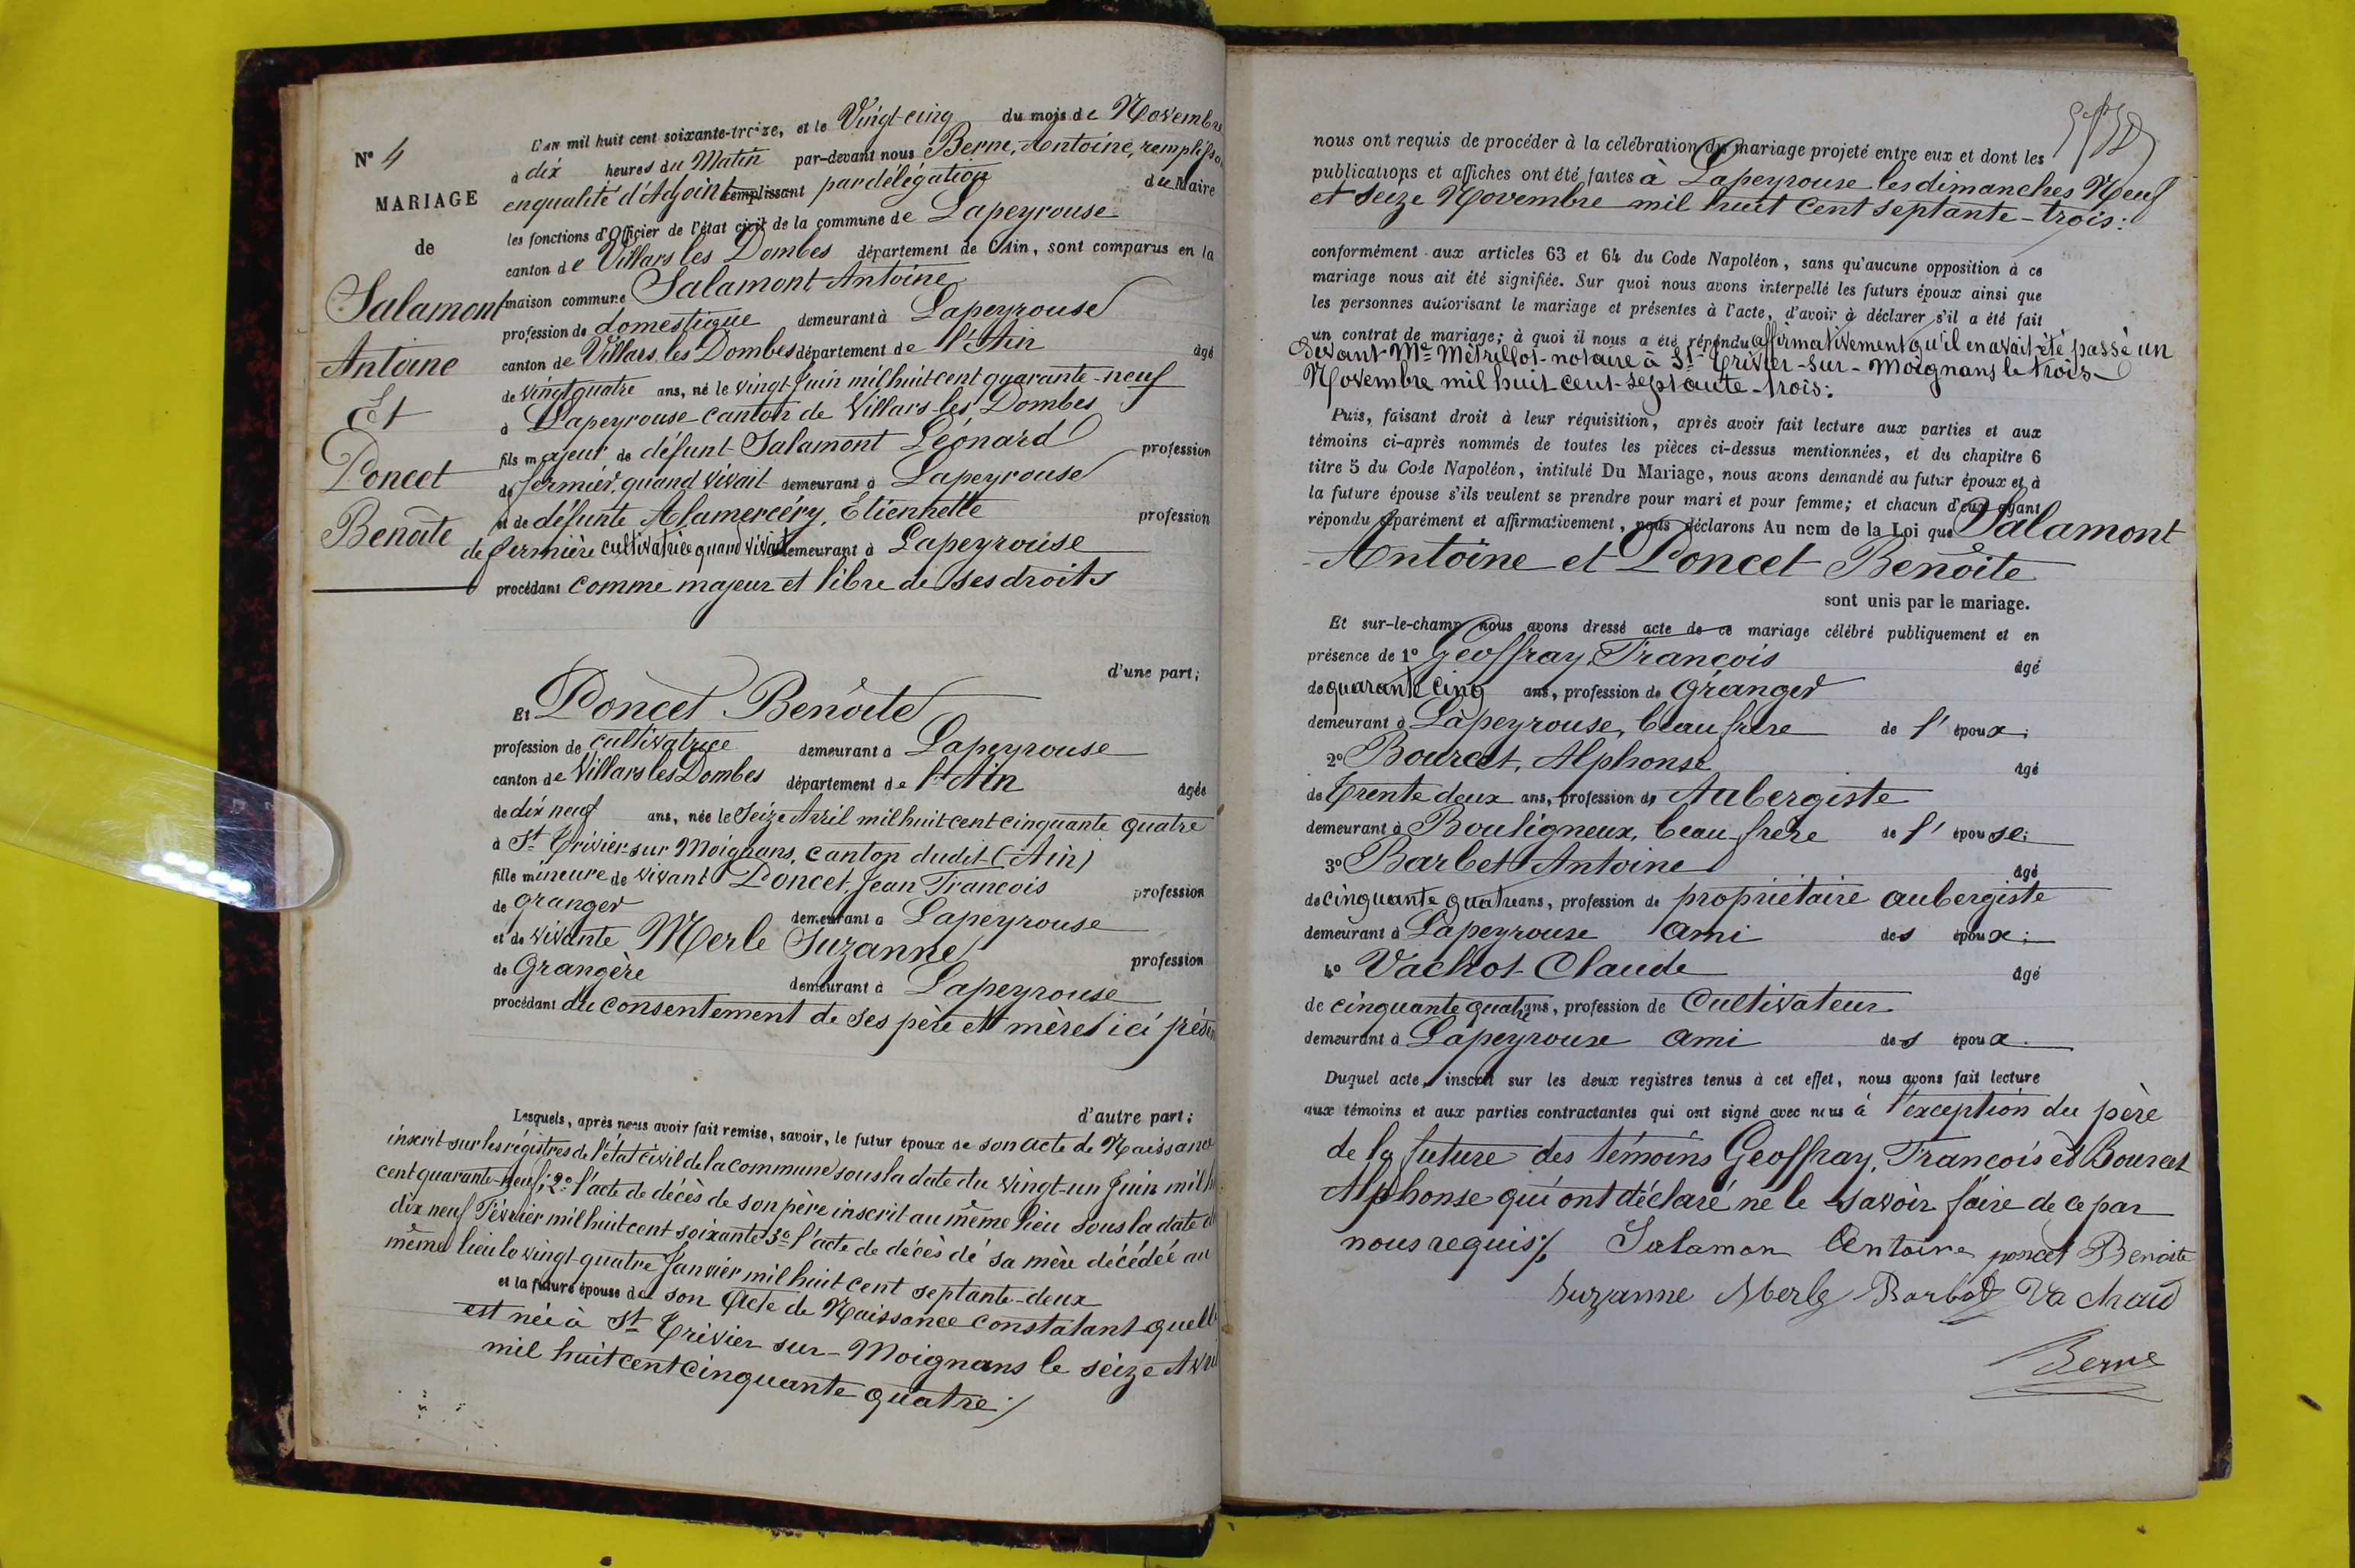 N° 4
MARIAGE
de
Salamont
Antoine
Et
Poncet
Benoîte
L'AN mil huit cent soixante-treize, et le Vingt-cinq du mois de Novembre
à dix heures du Matin par-devant nous Berne, Antoine, remplissa
en qualité d'Adjoint remplissant par délégation du Maire
les fonctions d'Officier de l'état civil de la commune de Lapeyrouse
canton de Villars les Dombes département de l'Ain, sont comparus en la
maison commune Salamont Antoine
profession de domestique demeurant à Lapeyrouse
canton de Villars les Dombes département de l'Ain âgé
de vingt quatre ans, né le vingt Juin mil huit cent quarante-neuf
à Lapeyrouse canton de Villars-les Dombes
fils majeur de défunt Salamont Léonard profession
de fermier, quand vivait demeurant à Lapeyrouse
et de défunte Alamercéry, Etiennette profession
de fermière cultivatrice quand vivait demeurant à Lapeyrouse
procédant comme majeur et libre de ses droits
d'une part;
Et Poncet Benoîte
profession de cultivatrice demeurant à Lapeyrouse
canton de Villars les Dombes département de l'Ain âgée
de dix neuf ans, née le Seize Avril mil huit cent cinquante quatre
à St Trivier-sur Moignans, canton dudit (Ain)
fille mineure de vivant Poncet, Jean François profession
de granger demeurant à Lapeyrouse
et de vivante Merle Suzanne profession
de Grangère demeurant à Lapeyrouse
procédant du consentement de ses père et mère ici présen
d'autre part;
Lesquels, après nous avoir fait remise, savoir, le futur époux de son acte de Naissance
inscrit sur les régistres de l'état civil de la commune sous la date du vingt-un Juin mil h
cent quarante-neuf; 2° l'acte de décès de son père inscrit au même lieu sous la date d
dix neuf Février mil huit cent soixante 3° l'acte de décès de sa mère décédée au
même lieu le vingt-quatre Janvier mil huit cent septante-deux
et la future épouse de son Acte de Naissance constatant quell
est née à St Trivier sur-Moignans le seize Avril
mil huit cent cinquante quatre
nous ont requis de procéder à la célébration du mariage projeté entre eux et dont les
publications et affiches ont été faites à Lapeyrouse les dimanches Neuf
et seize Novembre mil huit cent septante-trois:
conformément aux articles 63 et 64 du Code Napoléon, sans qu'aucune opposition à ce
mariage nous ait été signifiée. Sur quoi nous avons interpellé les futurs époux ainsi que
les personnes autorisant le mariage et présentes à l'acte, d'avoir à déclarer s'il a été fait
un contrat de mariage; à quoi il nous a été répondu affirmativement qu'il en avait été passé un
devant Me Métrillot notaire à St Trivier-sur-Moignans le trois
Novembre mil huit cent-septante-trois:
Puis, faisant droit à leur réquisition, après avoir fait lecture aux parties et aux
témoins ci-après nommés de toutes les pièces ci-dessus mentionnées, et du chapitre 6
titre 5 du Code Napoléon, intitulé Du Mariage, nous avons demandé au futur époux et à
la future épouse s'ils veulent se prendre pour mari et pour femme; et chacun d'eux ayant
répondu séparément et affirmativement, nous déclarons Au nom de la Loi que Salamont
Antoine et Poncet Benoîte
sont unis par le mariage.
Et sur-le-champ nous avons dressé acte de ce mariage célébré publiquement et en
présence de 1° Geoffray, François âgé
de quarante cinq ans, profession de Granger
demeurant à Lapeyrouse, beau frère de l'époux;
2° Bourcet, Alphonse âgé
de Trente deux ans, profession de Aubergiste
demeurant à Bouligneux, beau frère de l'épouse;
3° Barbet Antoine âgé
de cinquante quatre ans, profession de propriétaire aubergiste
demeurant à Lapeyrouse ami des époux;
4° Vachot Claude âgé
de cinquante quatre ans, profession de Cultivateur
demeurant à Lapeyrouse ami des époux.
Duquel acte, inscrit sur les deux registres tenus à cet effet, nous avons fait lecture
aux témoins et aux parties contractantes qui ont signé avec nous à l'exception du père
de la future des témoins Geoffray, François et Bourcet
Alphonse qui ont déclaré ne le savoir faire de ce par
nous requis
Salamon Antoine poncet Benoite
Suzanne Merle Barbet Va chaud
Berne